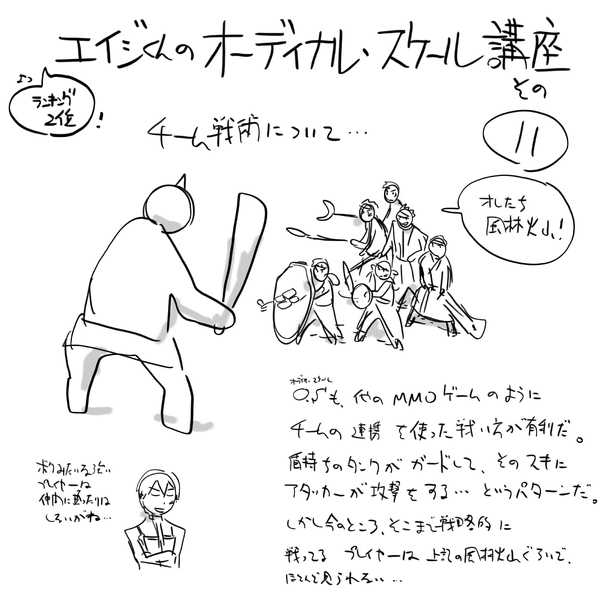 エイジくんのオーディカル・スケール講座
その
11
ランキング
2位!
チーム戦術について…
オレたち
風林火山!
オーディカル・スケール
O.Sも、他のMMOゲームのように
チームの連携で使った戦い方が有利だ。
盾持ちのタンクがガードして、そのスキに
アタッカーが攻撃をする…というパターンだ。
しかし今のところ、そこまで戦略的に
戦ってるプレイヤーは上記の風林火山ぐらいで、
ほとんど見られない…
ボクみたいな強い
プレイヤーは
仲間に頼ったりは
しないがね…